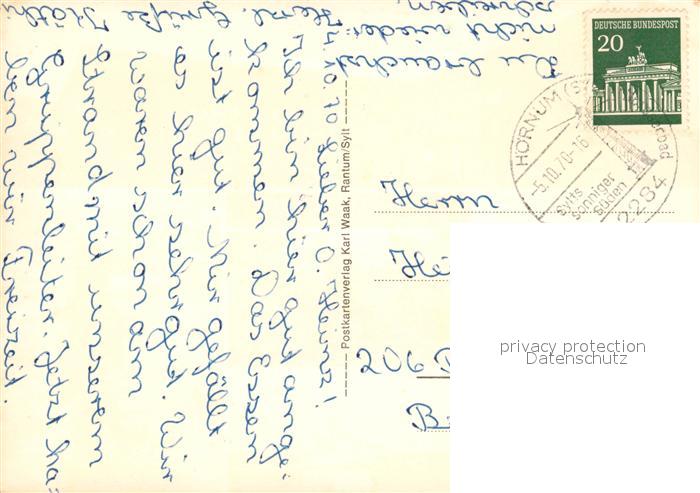 5.10.70 Lieber O. Heinz!
Ich bin hier gut ange-
kommen. Das Essen
ist gut. Mir gefällt
es hier sehr gut. Wir
waren schon am
Strand mit unserem
Gruppenleiter. Jetzt ha=
ben wir Freizeit.
Du brauchst
nicht wieder
schreiben.
Herzl. Grüße Käthi
Postkartenverlag Karl Waak, Rantum/Sylt
DEUTSCHE BUNDESPOST
20
HÖRNUM (SYLT)
-5.10.70-16
Sylts
sonniger
Süden
2284
Herrn
He
206
B
privacy protection
Datenschutz